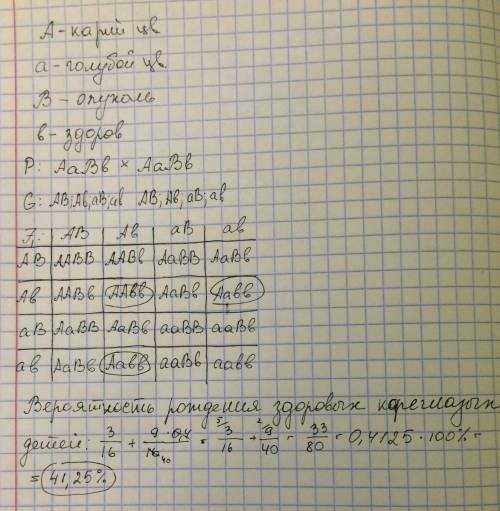 А - карий цв
а - голубой цв
В - опухоль
в - здоров
P: АаВв × АаВв
G: АВ; Ав; аВ; ав АВ; Ав; аВ; ав
F₁: АВ Ав аВ ав
АВ ААВВ ААВв АаВВ АаВв
Ав ААВв ААвв АаВв Аавв
аВ АаВВ АаВв ааВВ ааВв
ав АаВв Аавв ааВв аавв
Вероятность рождения здоровых кареглазых
детей: 3/16 + 9·0,4/16 = 3/16 + 9/40 = 33/80 = 0,4125·100% =
= 41,25%